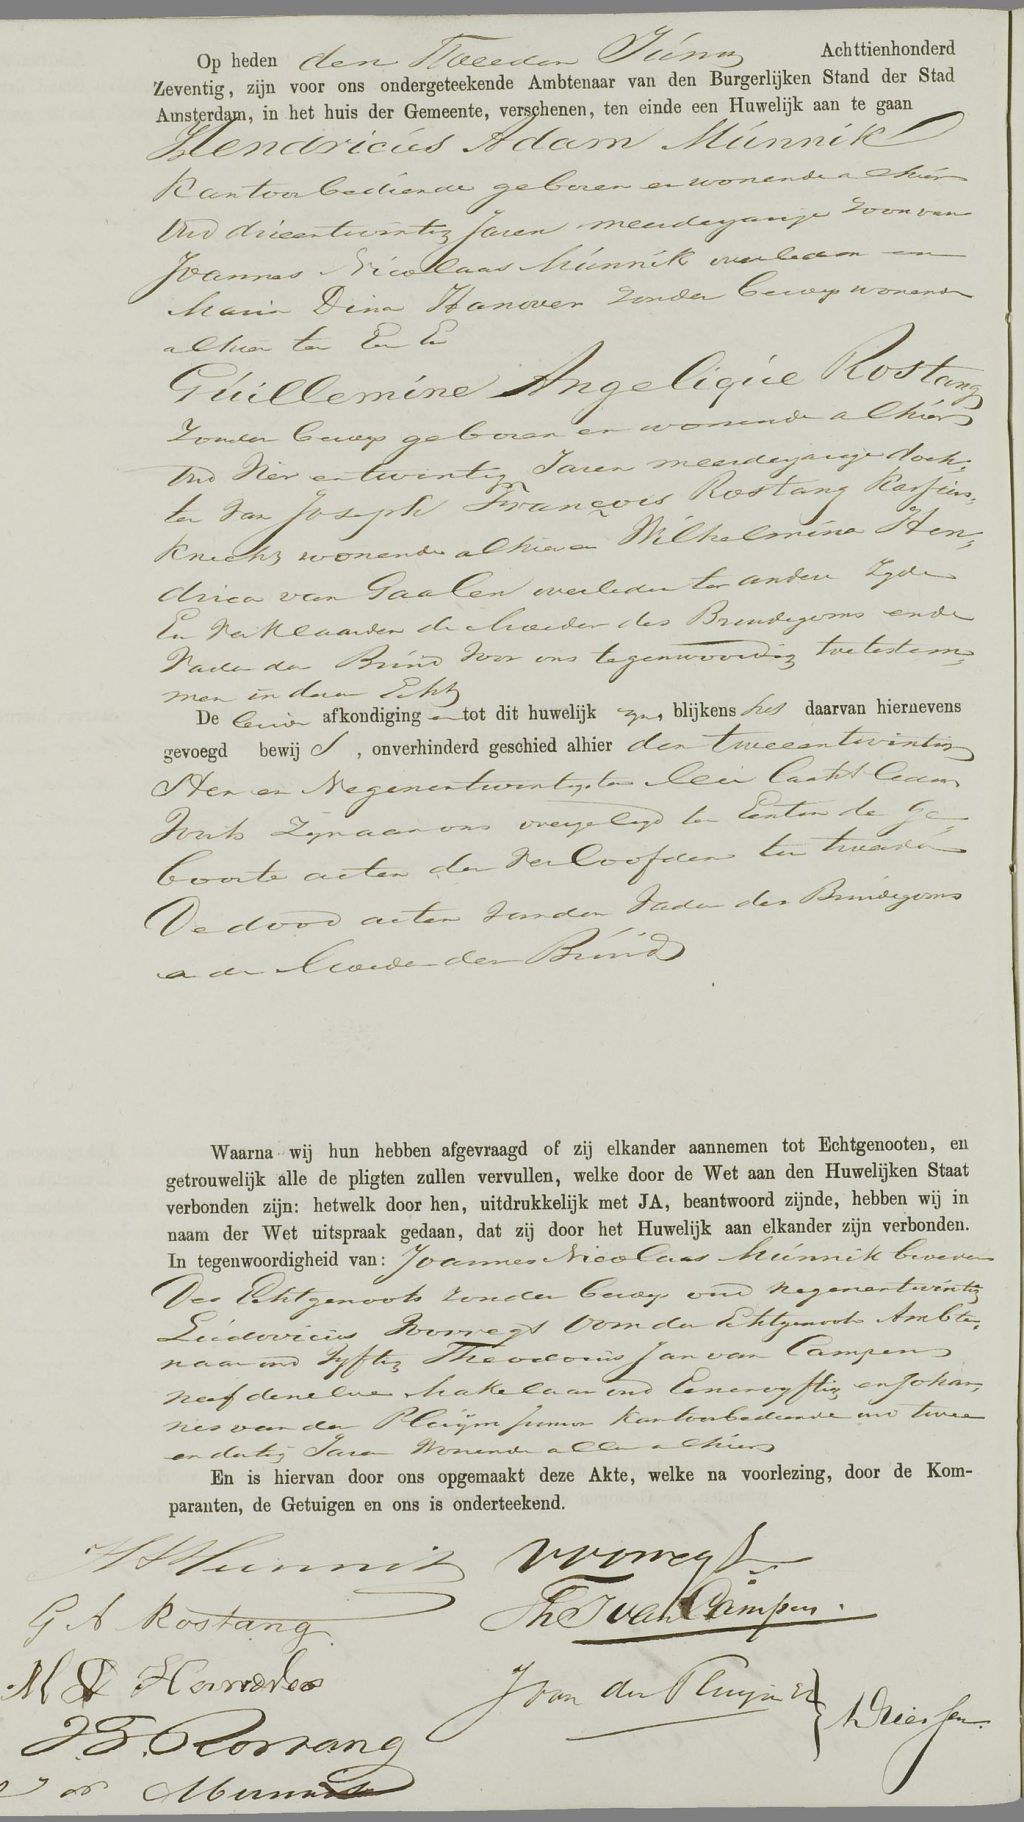 Op heden den Tweeden Júny Achttienhonderd
Zeventig, zijn voor ons ondergeteekende Ambtenaar van den Burgerlijken Stand der Stad
Amsterdam, in het huis der Gemeente, verschenen, ten einde een Huwelijk aan te gaan
Hendricús Adam Múnnik
Kantoorbediende geboren en wonende alhier
Oud drieentwintig Jaren meerderjarige Zoon van
Joannes Nicolaas Múnnik overleden en
Maria Dina Hanover Zonder beroep wonende
alhier ter Eene
Gúillemine Angeliqúe Rostang
Zonder beroep geboren en wonende alhier
Oud Vier entwintig Jaren meerderjarige doch-
ter van Joseph François Rostang
Knecht wonende alhier en Wilhelmina Hen-
drica van Gaalen overleden ter andere Zyde
En Verklaarden de Moeder des Bruidegoms en de
Vader der Brúid Voor ons tegenwoordig toetestem-
men in dezen Echt
De beide afkondiging en tot dit huwelijk zyn, blijkens het daarvan hiernevens
gevoegd bewij s, onverhinderd geschied alhier den tweeentwintig
Sten en Negenentwintigsten Mei laatstleden
Voorts Zyn aan ons overgelegd ten Eersten de Ge-
boorte acten der Verloofden ten tweede
De dood acten van den Vader des Brúidegoms
en de Moeder der Brúid
Waarna wij hun hebben afgevraagd of zij elkander aannemen tot Echtgenooten, en
getrouwelijk alle de pligten zullen vervullen, welke door de Wet aan den Huwelijken Staat
verbonden zijn: hetwelk door hen, uitdrukkelijk met JA, beantwoord zijnde, hebben wij in
naam der Wet uitspraak gedaan, dat zij door het Huwelijk aan elkander zijn verbonden.
In tegenwoordigheid van: Joannes Nicolaas Múnnik broeder
Des Echtgenoots Zonder beroep oud negenentwintig
Lúdovicús Vorregt Oom der Echtgenoote Ambte-
naar oud Vyftig Theodorús Jan van Campen
neef derzelve Makelaar oud Eenenvyftig en Johan-
nes van der Plúÿm Junior Kantoorbediende oud twee
en dertig Jaren Wonende allen alhier
En is hiervan door ons opgemaakt deze Akte, welke na voorlezing, door de Kom-
paranten, de Getuigen en ons is onderteekend.
H A Munnik
G A Rostang
Th J van Campen.
M D
J van der Pluijm Jr
J. F. Rostang
Munnik